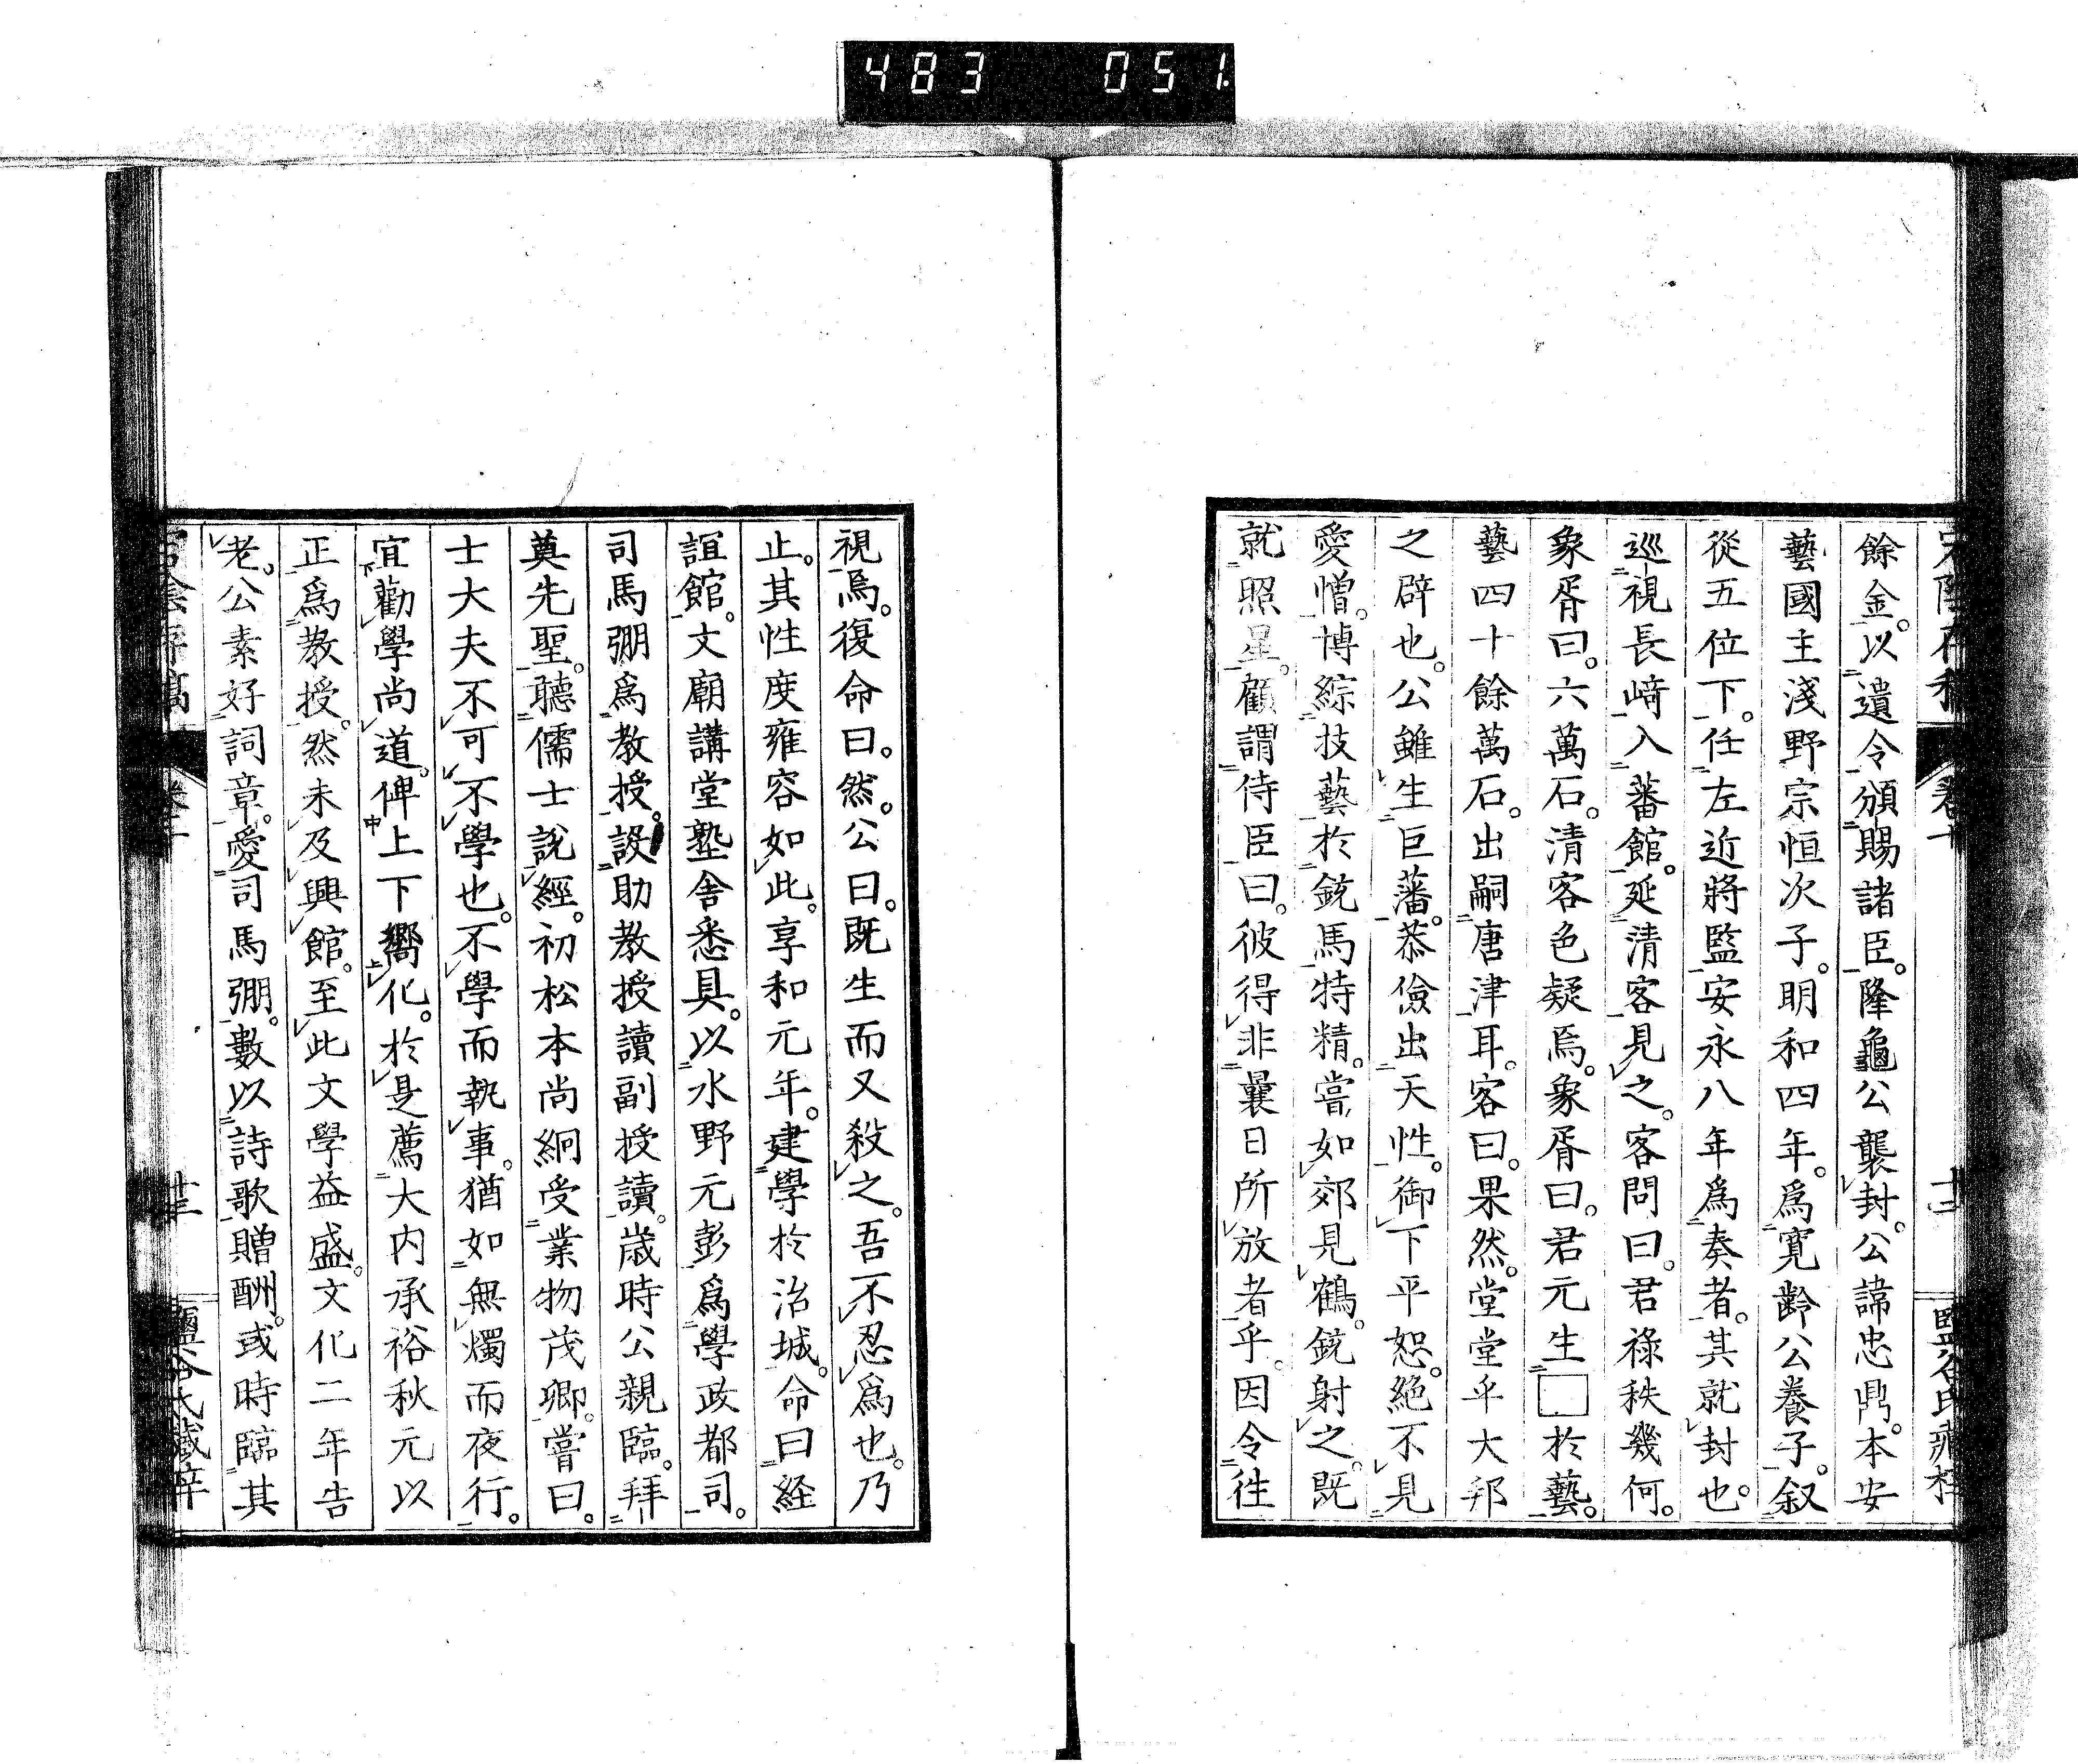 483 051
餘金。以遺令頒賜諸臣。隆龜公襲封。公諱忠鼎。本安
藝國主淺野宗恒次子。明和四年。爲寬齡公養子。叙
從五位下。任左近將監。安永八年爲奏者。其就封也。
巡視長崎入蕃館。延清客見之。客問曰。君祿秩幾何。
象胥曰。六萬石。清客色疑焉。象胥曰。君元生□於藝。
藝四十餘萬石。出嗣唐津耳。客曰。果然。堂堂乎大邦
之辟也。公雖生巨藩。恭儉出天性。御下平恕。絕不見
愛憎。博綜技藝於銃馬特精。嘗如郊見鶴。銃射之。既
就照星。顧謂侍臣曰。彼得非曩日所放者乎。因令往
視焉。復命曰。然。公曰。既生而又殺之。吾不忍爲也。乃
止。其性度雍容如此。享和元年。建學於治城。命曰経
誼館。文廟講堂塾舎悉具。以水野元彭爲學政都司。
司馬弸爲教授。設助教授讀副授讀。歳時公親臨。拜
奠先聖。聽儒士說經。初松本尚絅受業物茂卿。嘗曰。
士大夫不可不學也。不學而執事。猶如無燭而夜行。
宜勸學尚道。俾上下嚮化。於是薦大内承裕秋元以
正爲教授。然未及興館。至此文學益盛。文化二年告
老。公素好詞章。愛司馬弸。數以詩歌贈酬。或時臨其